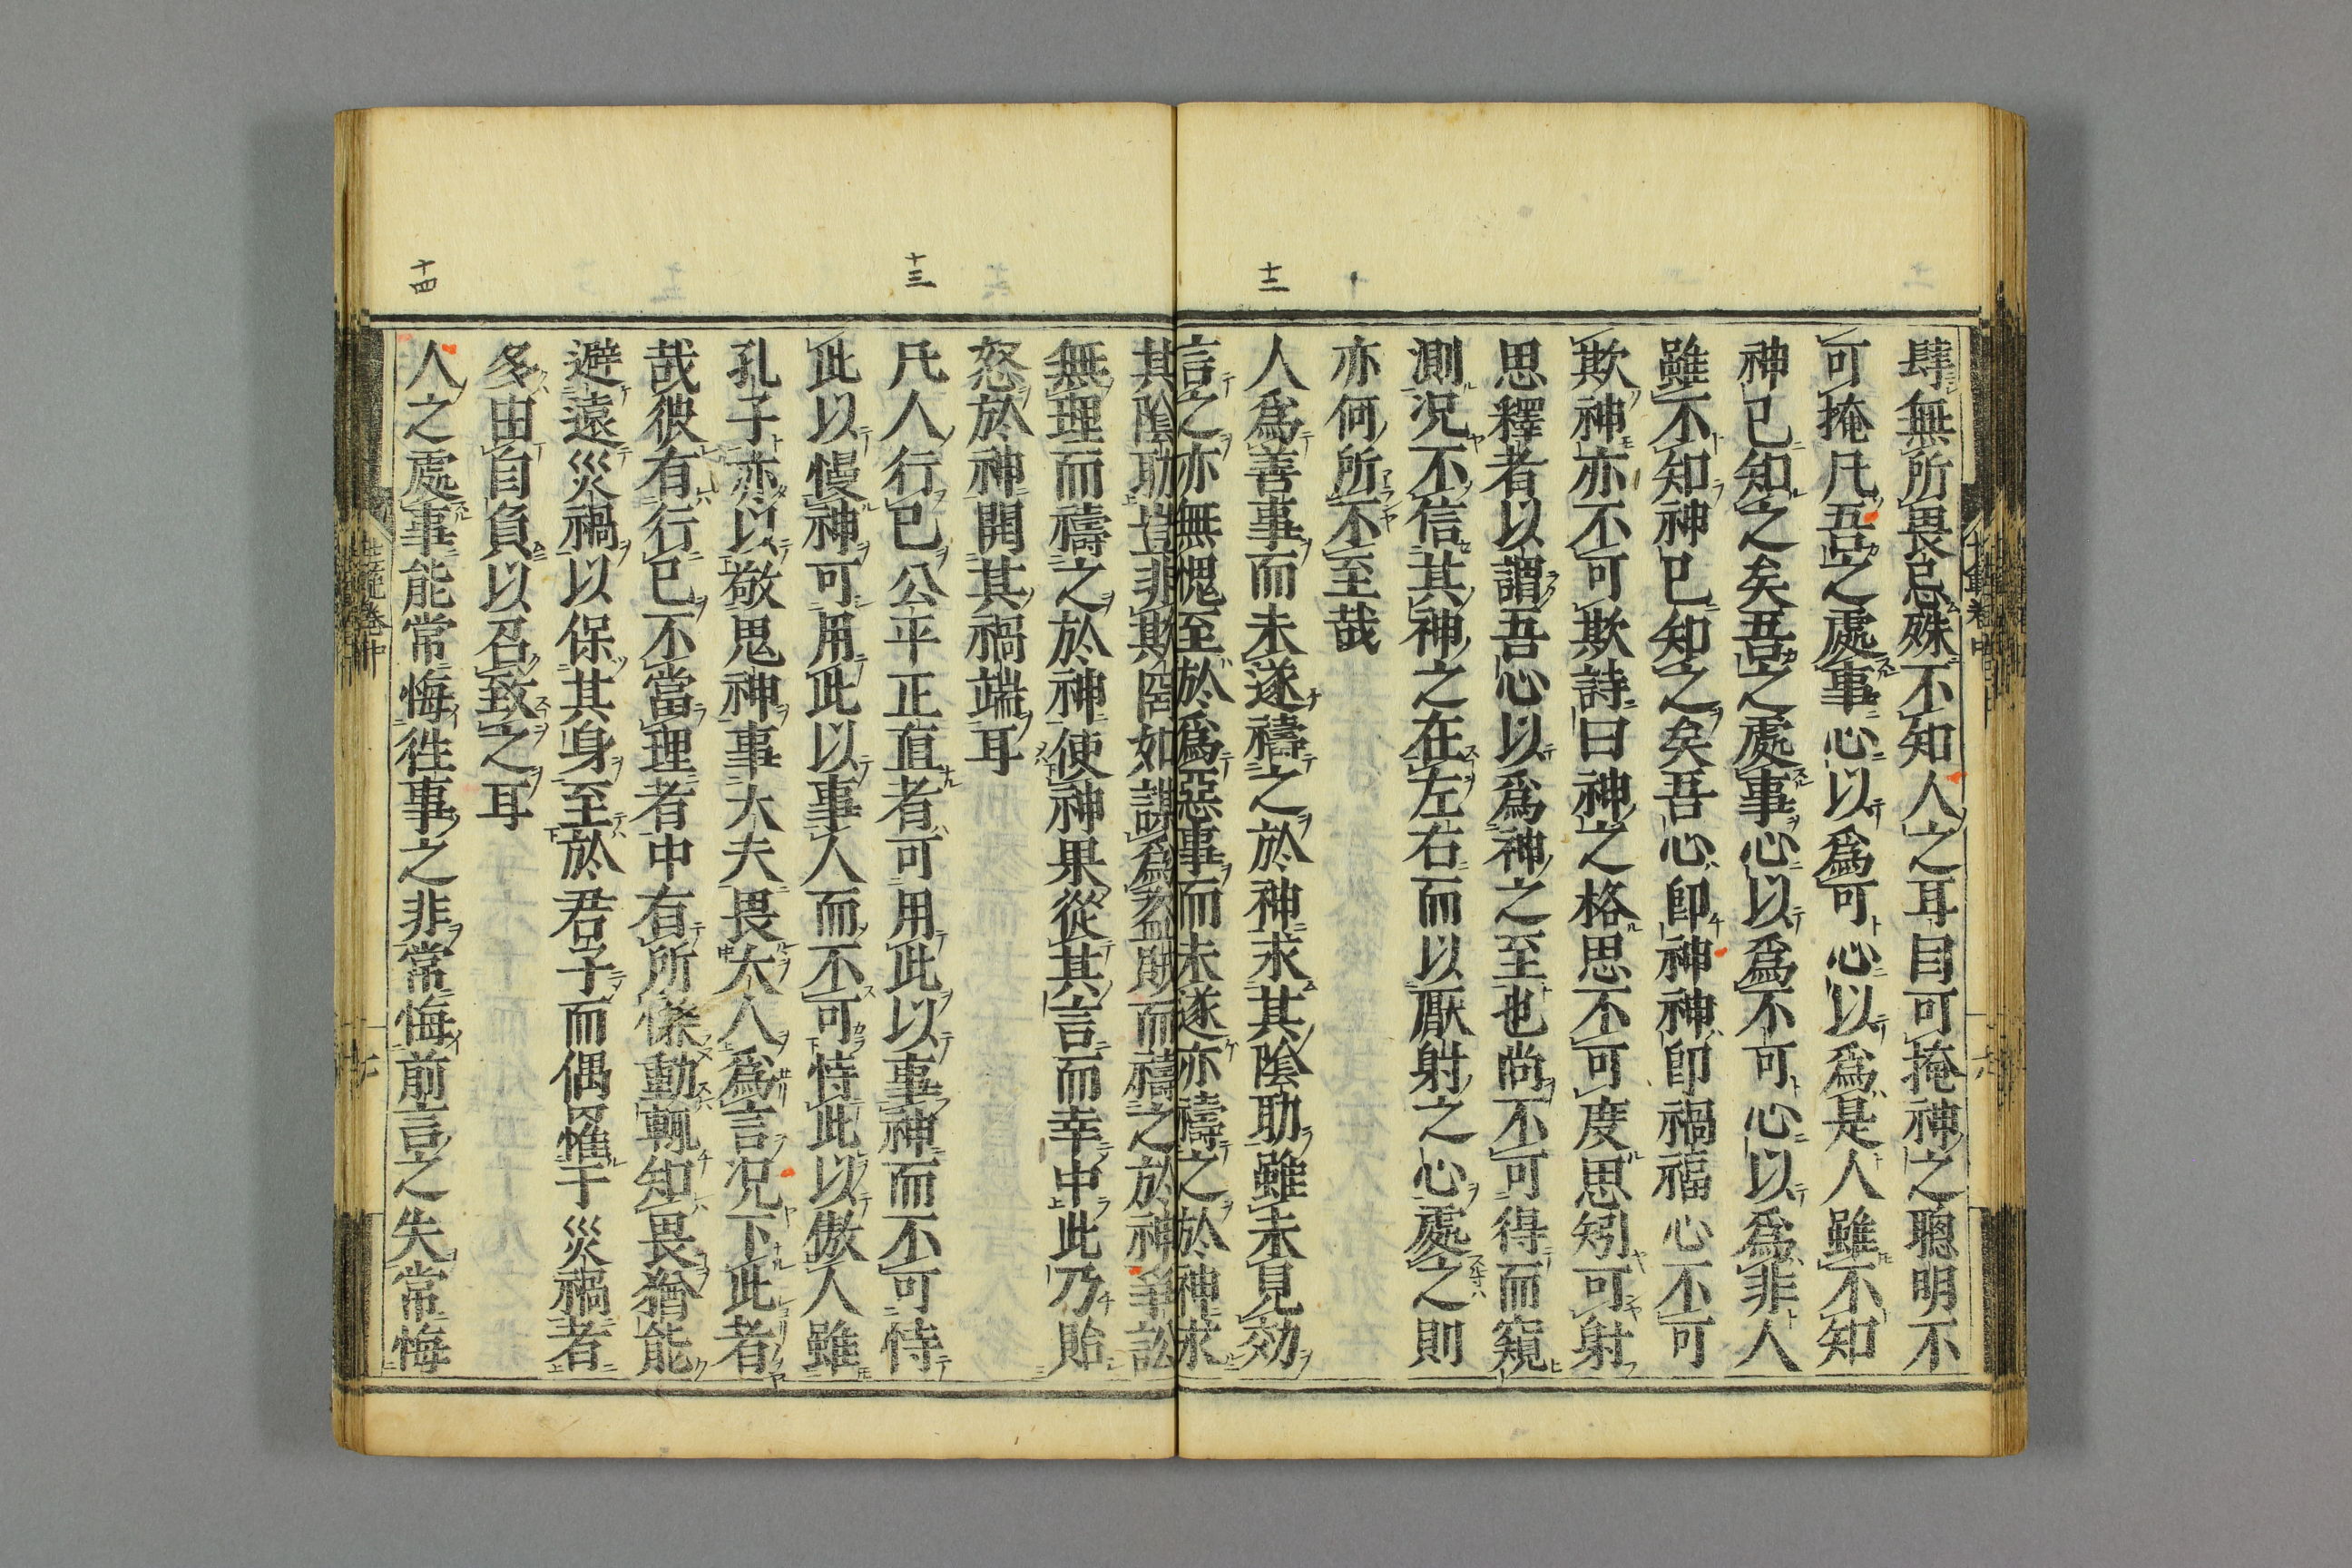 肆無所畏忌殊不知人之耳目可掩神之聰明不
可掩凡吾之處事心以爲可心以爲是人雖不知
神已知之矣吾之處事心以爲不可心以爲非人
雖不知神已知之矣吾心卽神神卽禍福心不可
欺神亦不可欺詩曰神之格思不可度思矧可射
思釋者以謂吾心以爲神之至也尚不可得而窺
測况不信其神之在左右而以厭射之心處之則
亦何所不至哉
十二
人爲善事而未遂禱之於神求其陰助雖未見効
言之亦無愧至於爲惡事而未遂亦禱之於神求
其陰助豈非欺罔如謀爲盗賊而禱之於神爭訟
無理而禱之於神使神果從其言而幸中此乃貽
怒於神開其禍端耳
十三
凡人行已公平正直者可用此以事神而不可恃
此以慢神可用此以事人而不可恃此以傲人雖
孔子亦以敬鬼神事大夫畏大人爲言况下此者
哉彼有行已不當理者中有所慊動輒知畏猶能
避遠災禍以保其身至於君子而偶罹于災禍者
多由自負以召致之耳
十四
人之處事能常悔徃事之非常悔前言之失常悔